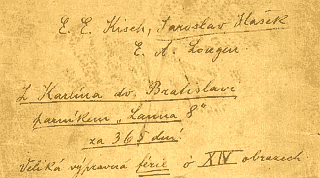 E. E. Kisch, Jaroslav Hašek
E. A. Longen
Z Karlína do Bratislavi
parníkem „Lanna 8"
za 365 dní
Veliká výpravná férie o XIV obrazech